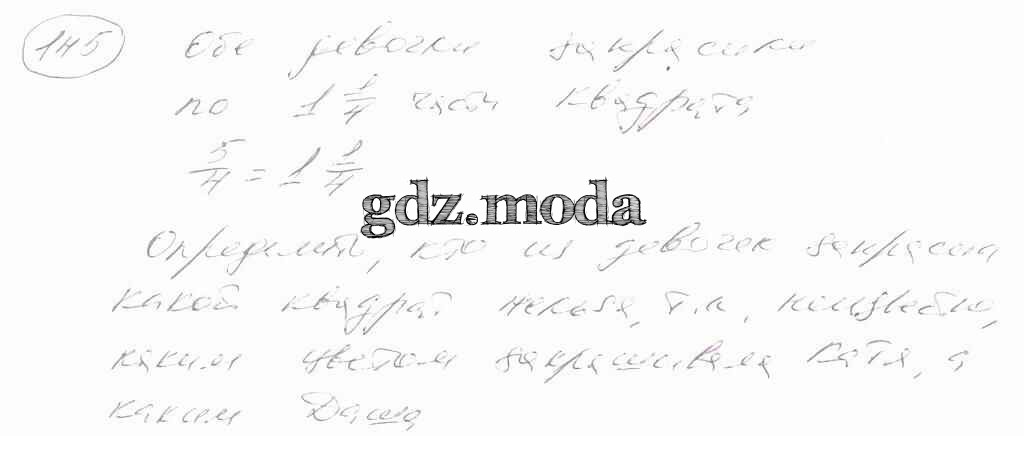 145 Обе девочки закрасили
по 1 1/4 части квадрата
5/4 = 1 1/4
gdz.moda
Определить, кто из девочек закрасил
какой квадрат нельзя, т.к. неизвестно,
каким цветом закрашивала Катя, а
каким Даша